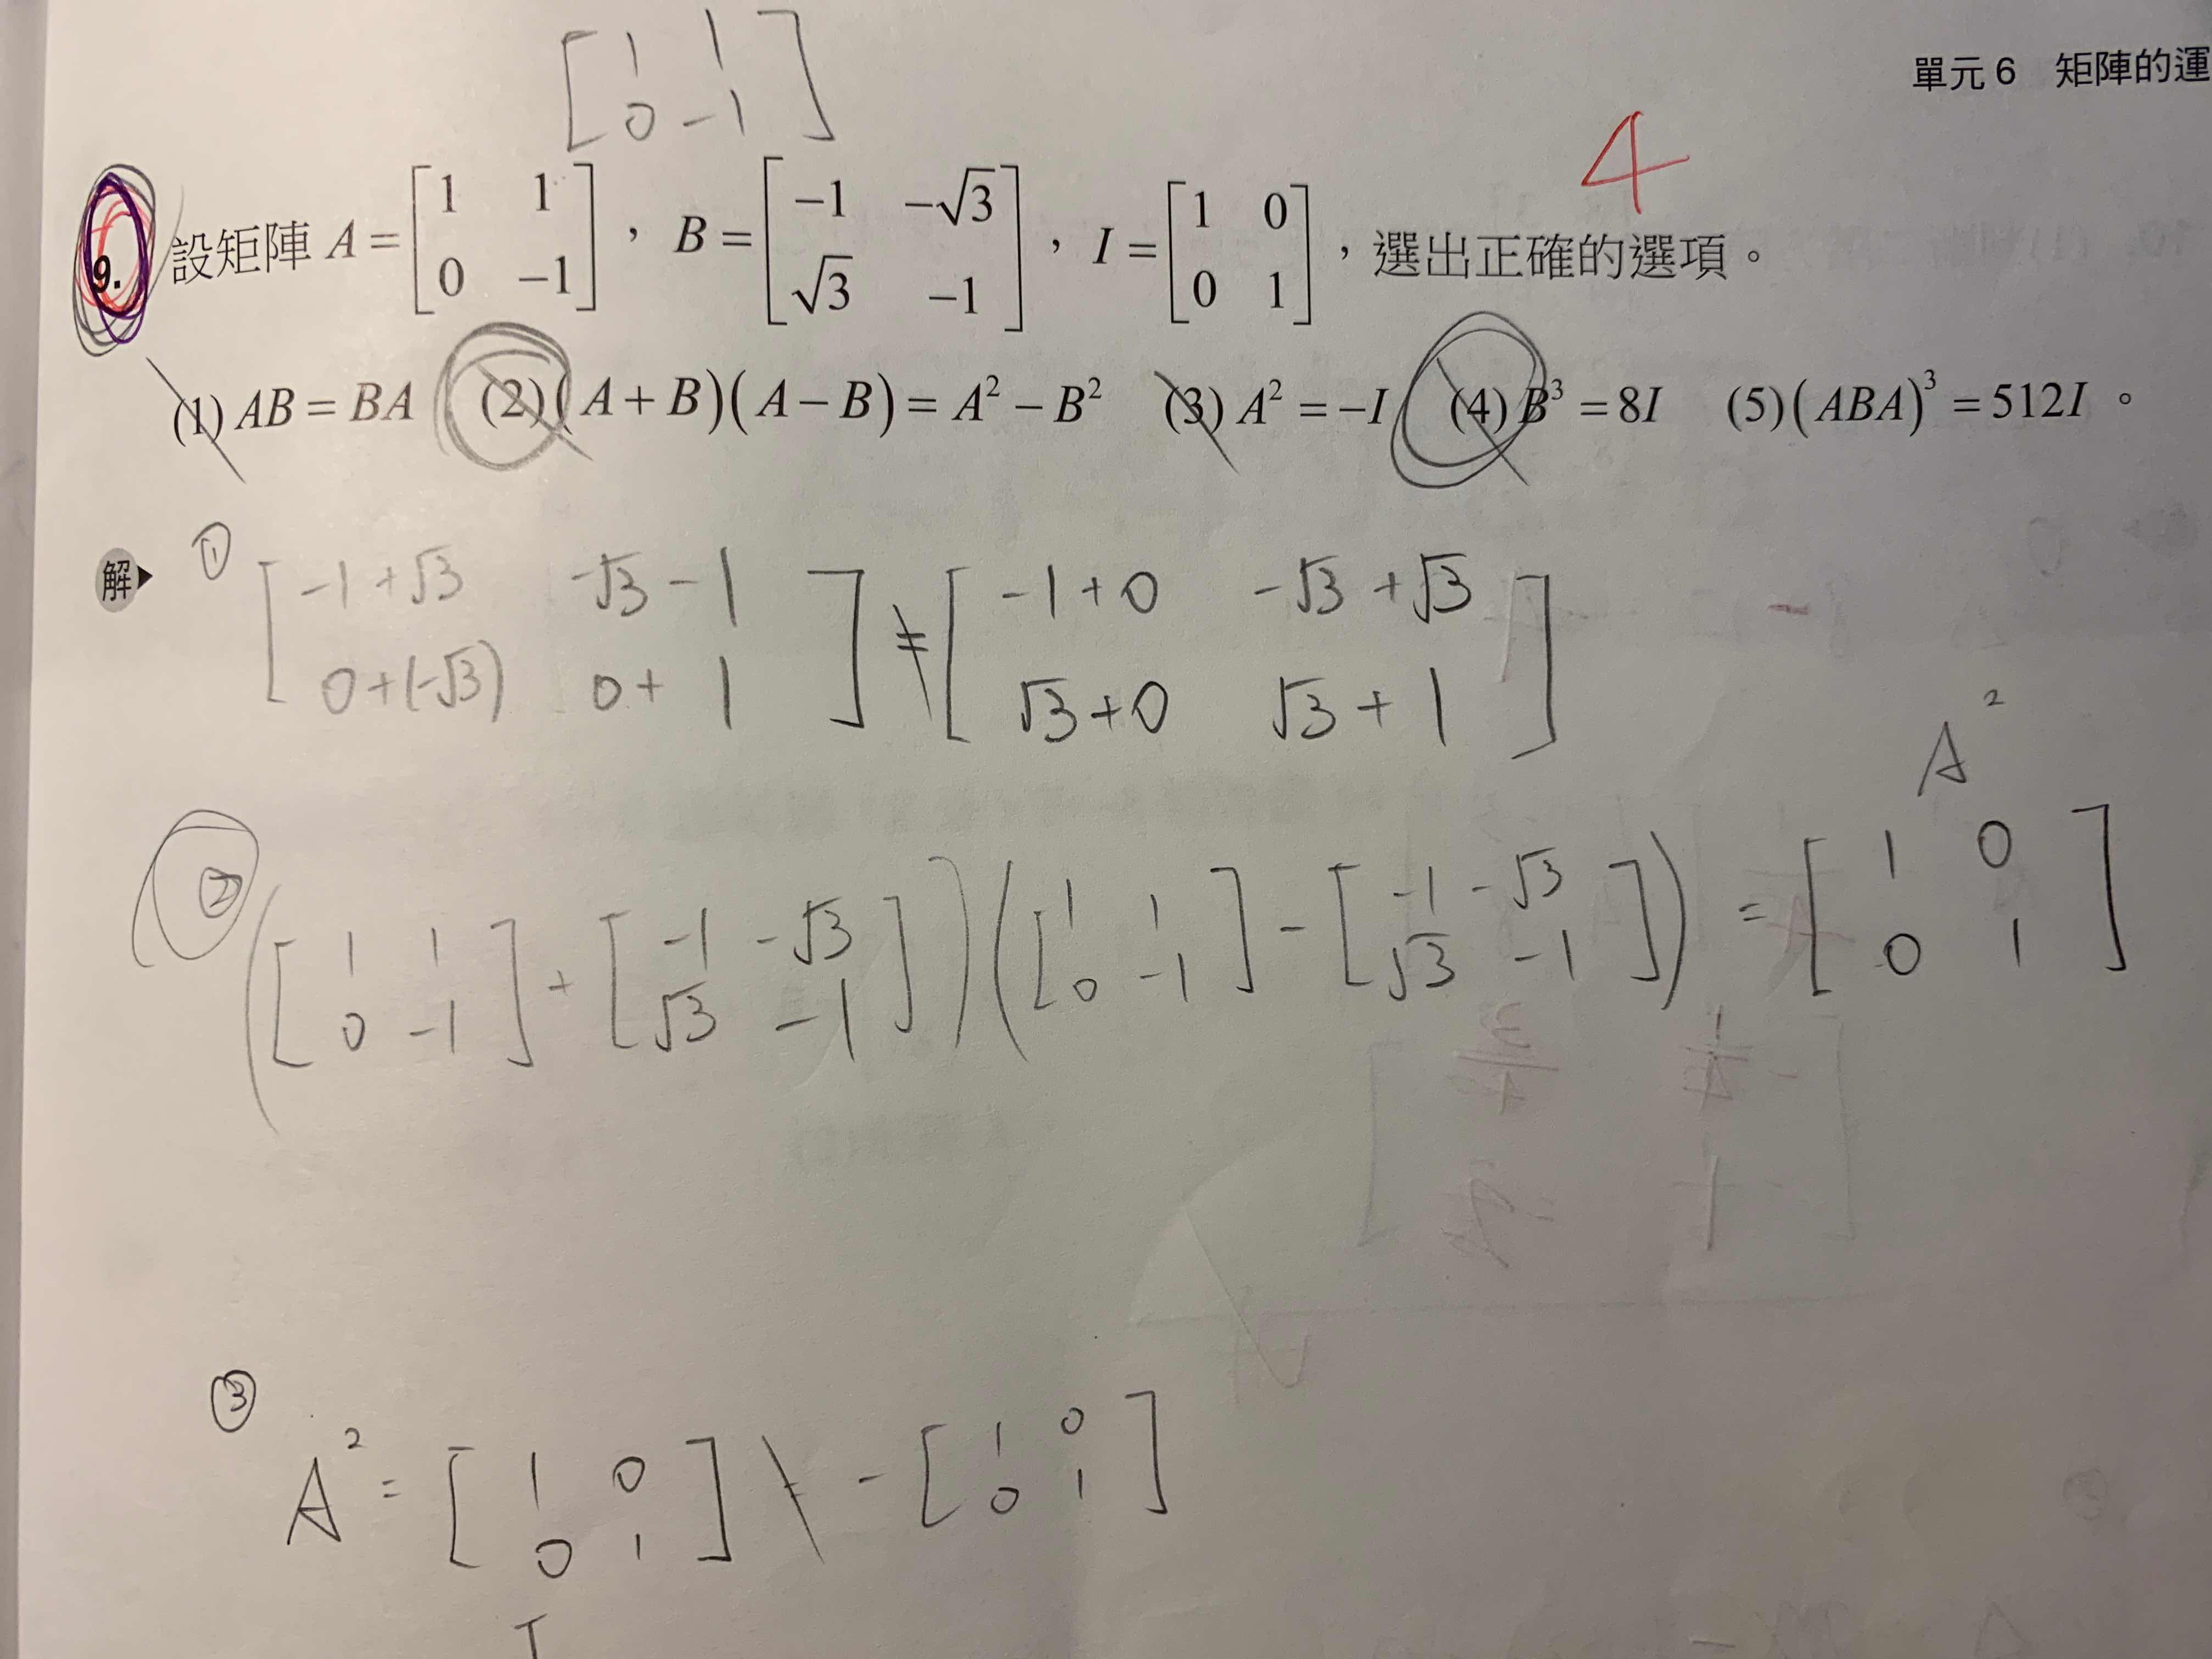 [1 1
0 -1]
單元 6 矩陣的運
4
9. 設矩陣 A = [1 1; 0 -1], B = [-1 -√3; √3 -1], I = [1 0; 0 1],選出正確的選項。
(1) AB = BA (2) (A + B)(A − B) = A² − B² (3) A² = −I (4) B³ = 8I (5) (ABA)³ = 512I 。
解▶ ① [-1+√3 -√3-1; 0+(-√3) 0+1] ≠ [-1+0 -√3+√3; √3+0 √3+1]
A²
② ([1 1; 0 -1] + [-1 -√3; √3 -1])([1 1; 0 -1] - [-1 -√3; √3 -1]) = [1 0; 0 1]
③ A² = [1 0; 0 1] ≠ -[1 0; 0 1]
I